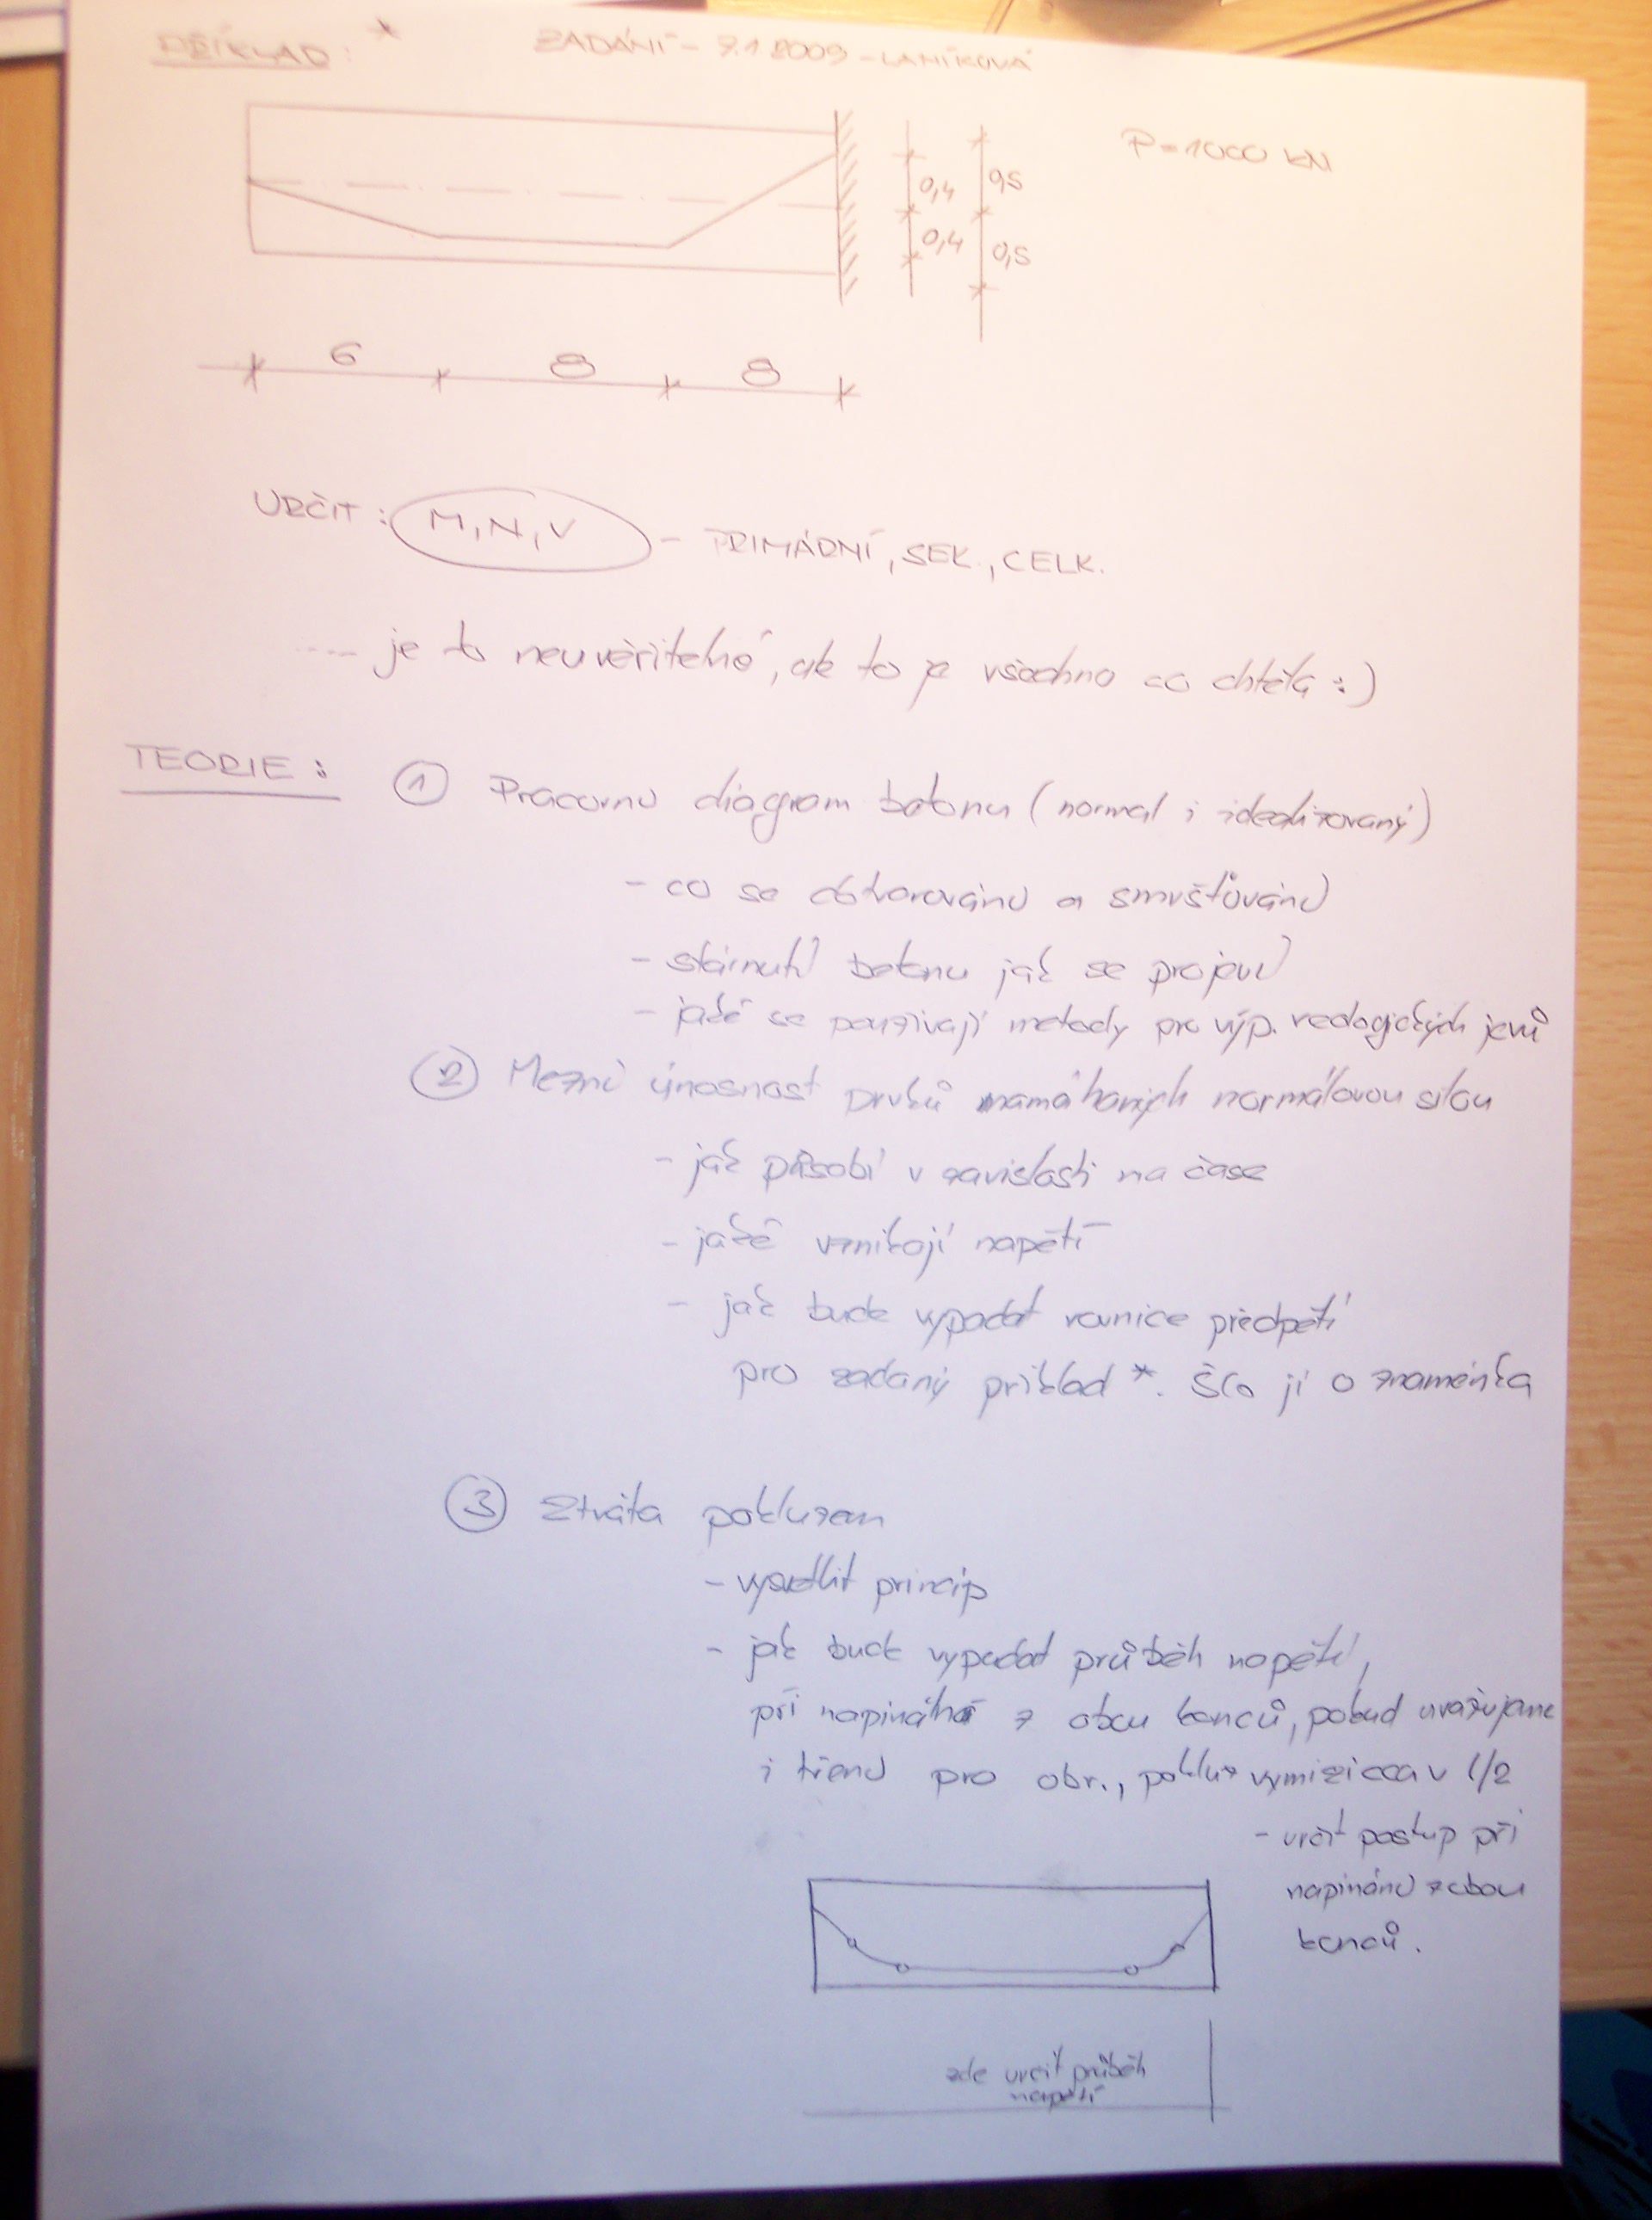 PŘÍKLAD: *
ZADÁNÍ - 7.1.2009 - LANÍKOVÁ
P=1000 kN
0,4 0,5
0,4 0,5
6 8 8
URČIT: M, N, V - PRIMÁRNÍ, SEK., CELK.
.... je to neuvěřitelné, ale to je všechno co chtěla :)
TEORIE: 1 Pracovní diagram betonu (normal i idealizovaný)
- co se dotvarování a smršťování
- stárnutí betonu jak se projeví
- jaké se používají metody pro výp. reologických jevů
2 Mezní únosnost prvků namáhaných normálovou silou
- jak působí v zavislosti na čase
- jaké vznikají napětí
- jak bude vypadat rovnice předpětí
pro zadaný příklad *. Šlo jí o znaménka
3 Ztráta pokluzem
- vysvětlit princip
- jak bude vypadat průběh napětí,
při napínání z obou konců, pokud uvažujeme
i tření pro obr., pokluz vymizí cca v l/2
- určit postup při
napínání z obou
konců.
zde určit průběh
napětí